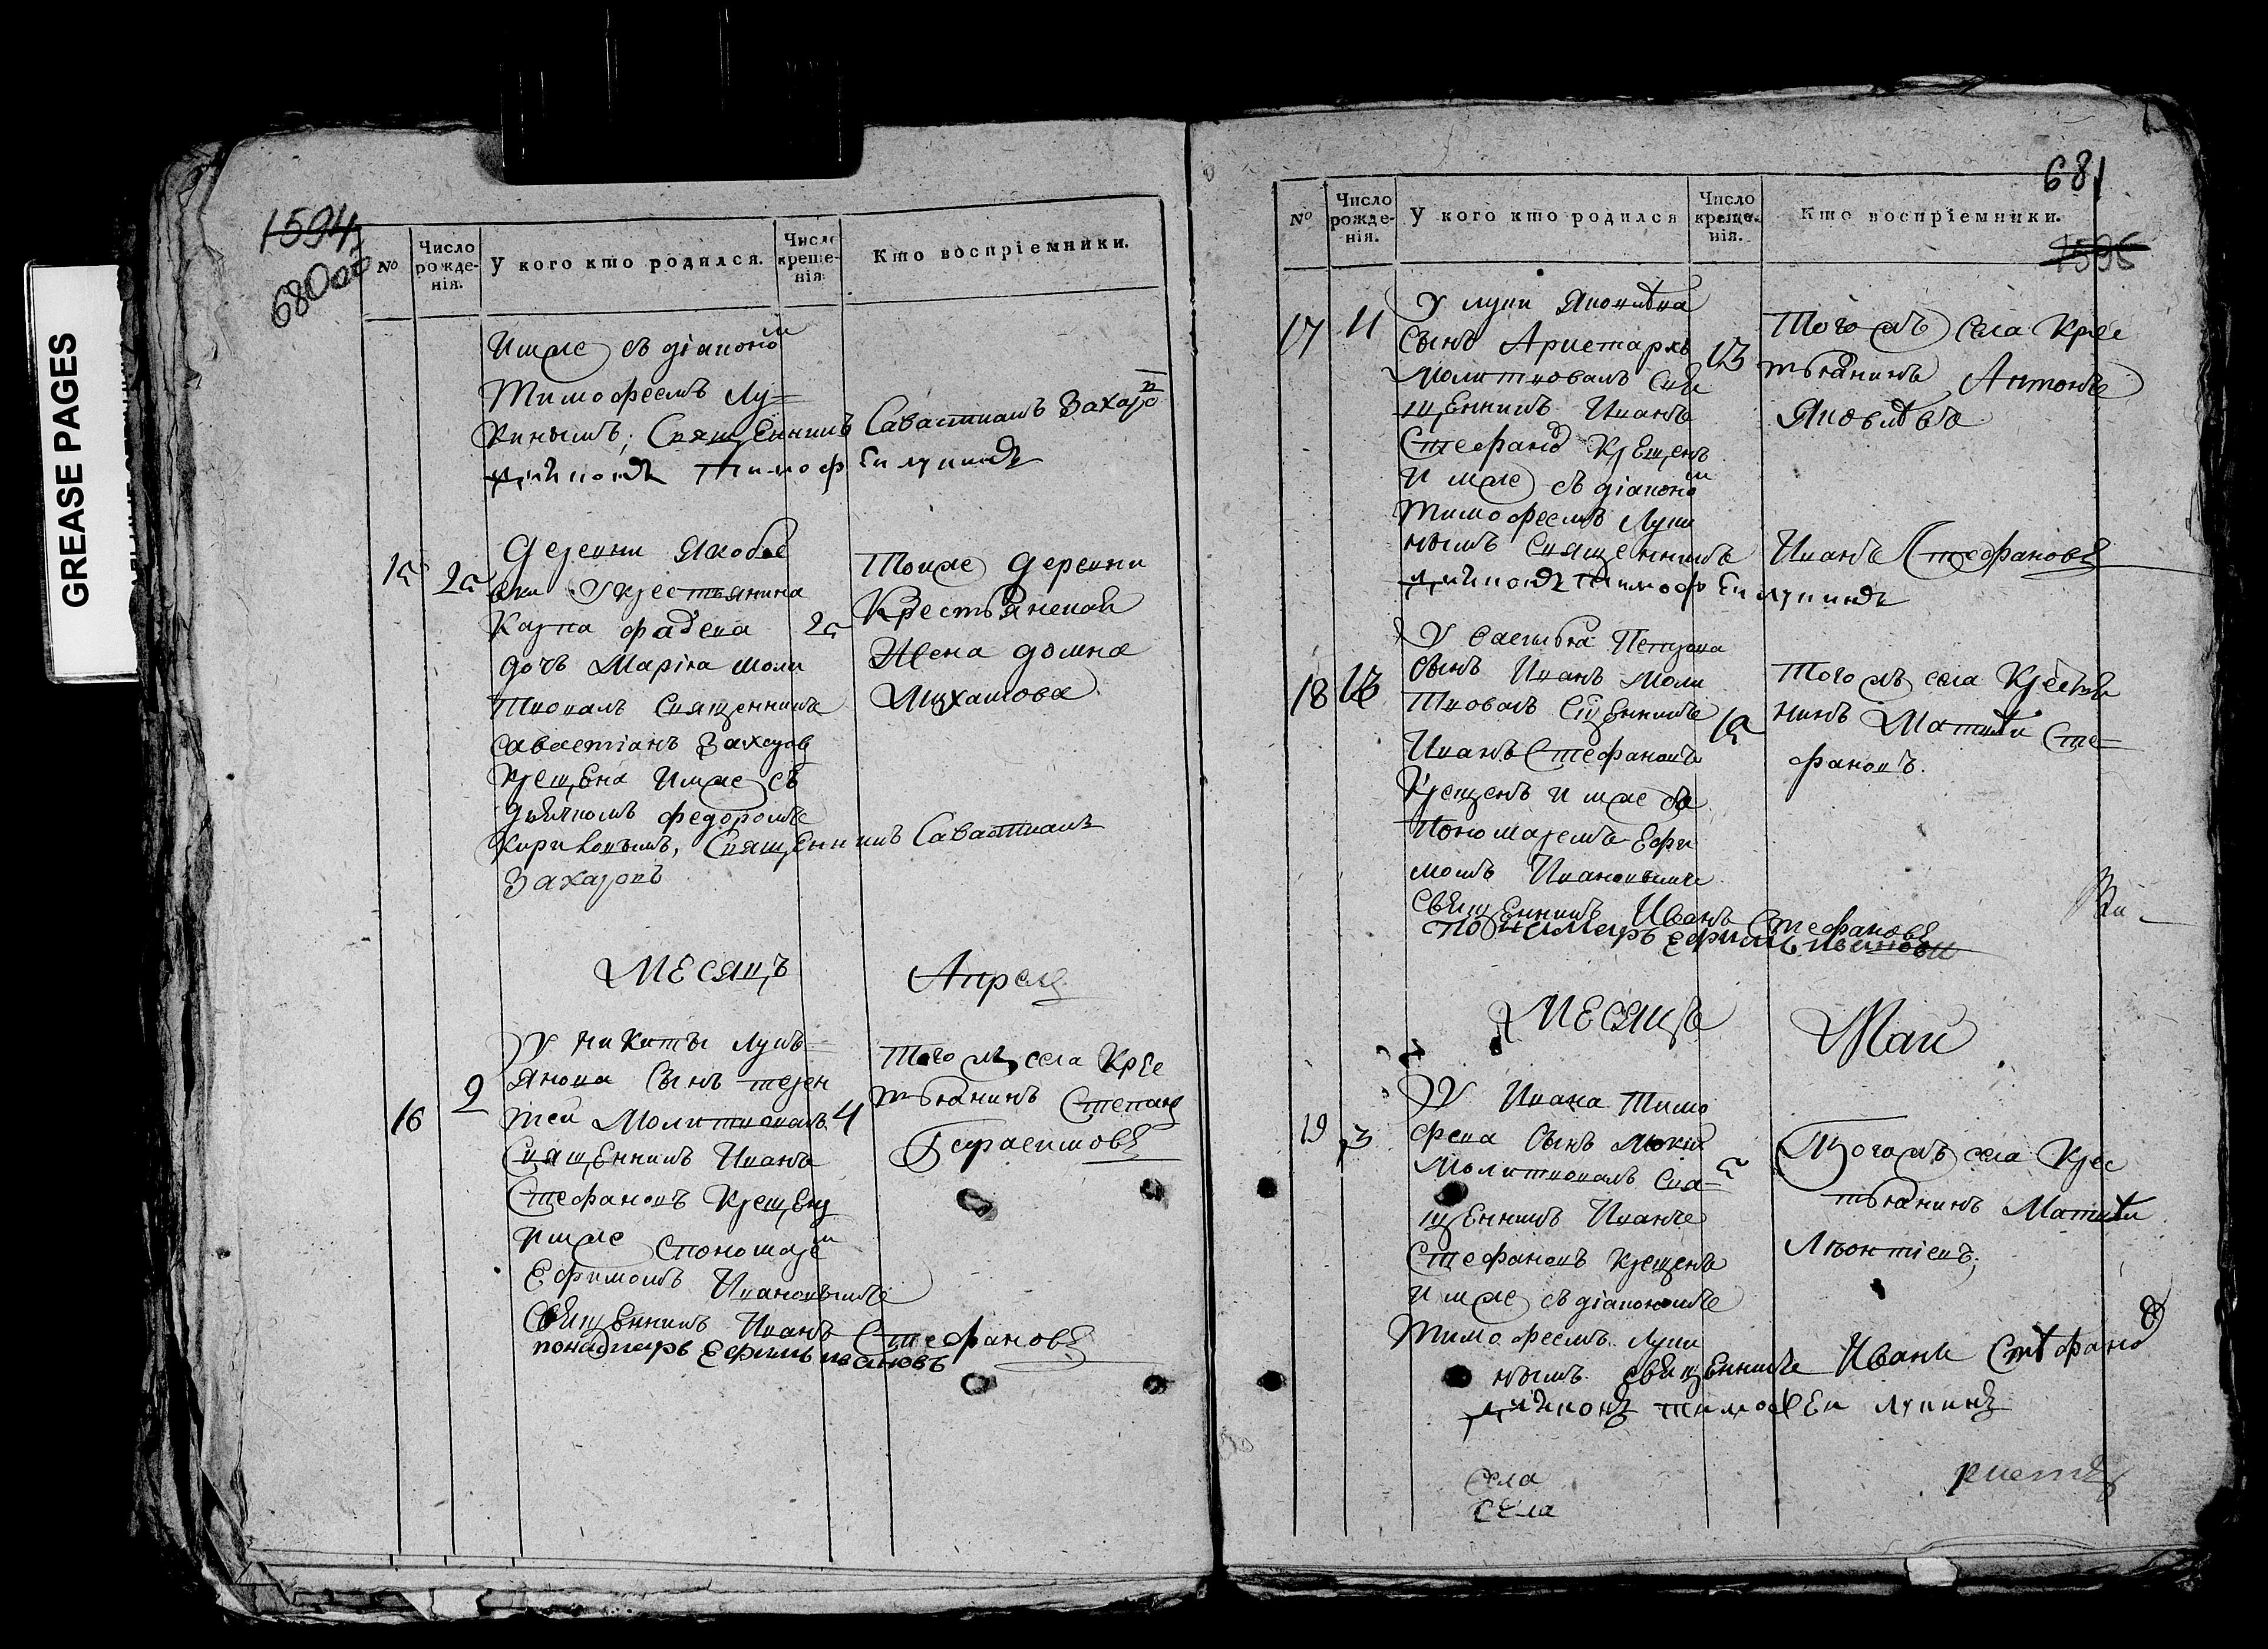 GREASE PAGES
1594
680об
№
Число рожде-нія.
У кого кто родился.
Число креще-нія
Кто воспріемники.
имже съ діакономъ
Тимофеемъ Лу-
кинымъ, Священникъ Савастианъ Захаровъ
діяконъ тимофеи лукинъ
15
25
Деревни Якобов
ски У крестьянина
Карпа фадеева
дочъ Маріа моли
твовалъ Священникъ
савастіанъ Захаров
крещена Имже съ
дьячкомъ федоромъ
кириковымъ, Священникъ Савастианъ
Захаровъ
25
Тоиже деревни
Крестьянская
Жена домна
Михаилова
Месяцъ Апрель
16
2
У никиты лукь-
янова Сынъ терен
теи Молитвовалъ
Священникъ Иванъ
Стефановъ Крещенъ
имже с пономаремъ
Ефимомъ Ивановымъ
Священникъ Иванъ Стефановъ
понамарь ефимъ ивановъ
4
Того жъ села Крес
тьянинъ Степанъ
Герасимовъ
681
1595
№
Число рожде-нія.
У кого кто родился
Число креще-нія.
Кто воспріемники.
17
11
У луки Яковлева
Сынъ Аристархъ
Молитвовалъ Свя
щенникъ Иванъ
Стефановъ Крещенъ
И мже съ діакономъ
Тимофеемъ Луки
нымъ Священникъ Иванъ Стефановъ
діяконъ тимофеи лукинъ
13
Того жъ села Крес
тьянинъ Антонъ
Яковлевъ
18
13
У Василья Петрова
Сынъ Иванъ Моли
твовалъ Сщенникъ
Иванъ Стефановъ
Крещенъ И мже съ
Пономаремъ Ефи
момъ Ивановымъ
Священникъ Иванъ Стефановъ
понамарь ефимъ ивановъ
15
Того жъ села Крестья
нинъ Матвей Сте-
фановъ.
Месяцъ Маи
19
3
У Ивана Тимо
феева Сынъ Мокій
Молитвовалъ Свя-
щенникъ Иванъ
Стефановъ крещенъ
И мже съ діакономъ
Тимофеемъ Луки
нымъ священникъ Иванъ Стефановъ
діяконъ тимофеи лукинъ
5
Того жъ села Крес
тьянинъ Матвей
Леонтіевъ.
села
села